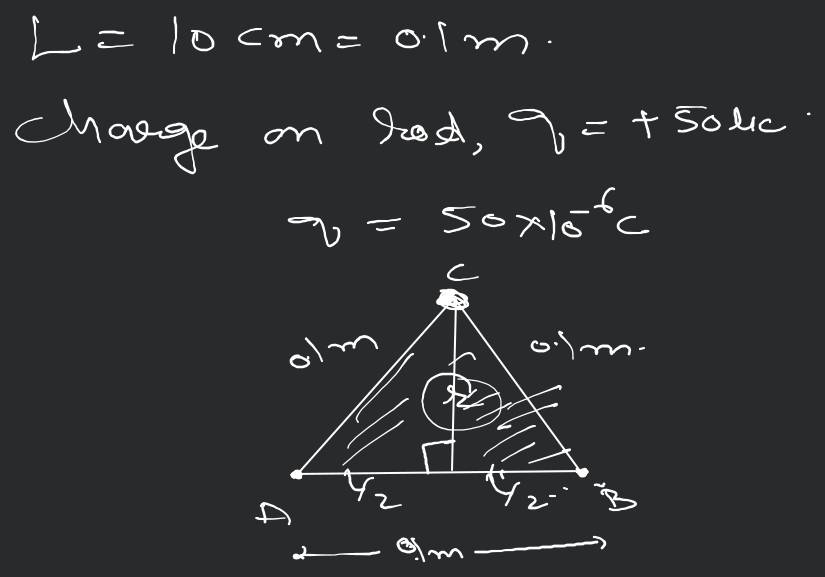 L = 10 cm = 0.1 m.
Charge on rod, q = + 50 μc.
q = 50 × 10⁻⁶ C
C
0.1 m 0.1 m.
r
L/2 L/2
A B
0.1 m